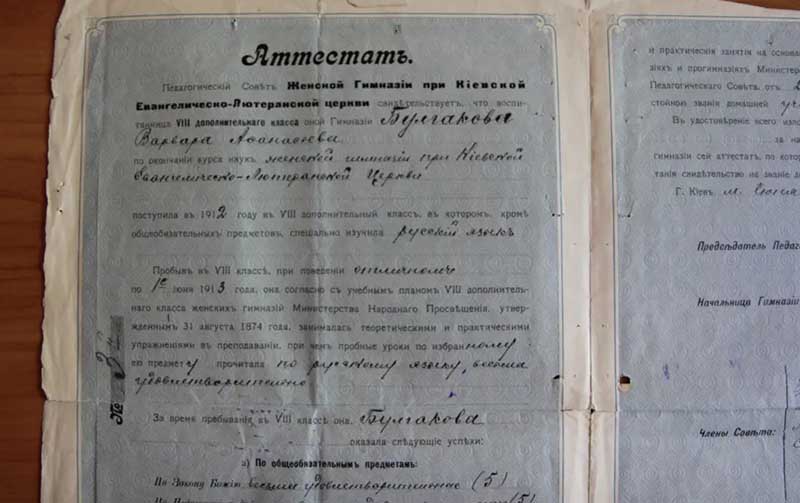 Аттестатъ.
Педагогическій Совѣтъ Женской Гимназіи при Кіевской
Евангелическо-Лютеранской церкви свидѣтельствуетъ, что воспи-
танница VIII дополнительнаго класса оной Гимназіи Булгакова
Варвара Аѳанасьева
по окончаніи курса наукъ женской гимназіи при Кіевской
Евангелическо-Лютеранской Церкви
поступила въ 1912 году въ VIII дополнительный классъ, въ которомъ, кромѣ
общеобязательныхъ предметовъ, спеціально изучила русскій языкъ
Пробывъ въ VIII классѣ, при поведеніи отличномъ
по 1е іюня 1913 года, она, согласно съ учебнымъ планомъ VIII дополнитель-
наго класса женскихъ гимназій Министерства Народнаго Просвѣщенія, утвер-
жденнымъ 31 августа 1874 года, занималась теоретическими и практическими
упражненіями въ преподаваніи, при чемъ пробные уроки по избранному
ею предмету прочитала по русскому языку, весьма
удовлетворительно
За время пребыванія въ VIII классѣ она, Булгакова
оказала слѣдующіе успѣхи:
а) По общеобязательнымъ предметамъ:
По Закону Божію весьма удовлетворительные (5)
(5)
№ 3
и практическія занятія на основа
зіяхъ и прогимназіяхъ Министер
Педагогическаго Совѣта, отъ 2
стойною званія домашней уч
Въ удостовѣреніе всего изло
за на
гимназіи сей аттестатъ, по котор
танія свидѣтельство на званіе до
Г. Кіевъ
Предсѣдатель Педаго
Начальница Гимназіи
Члены Совѣта: